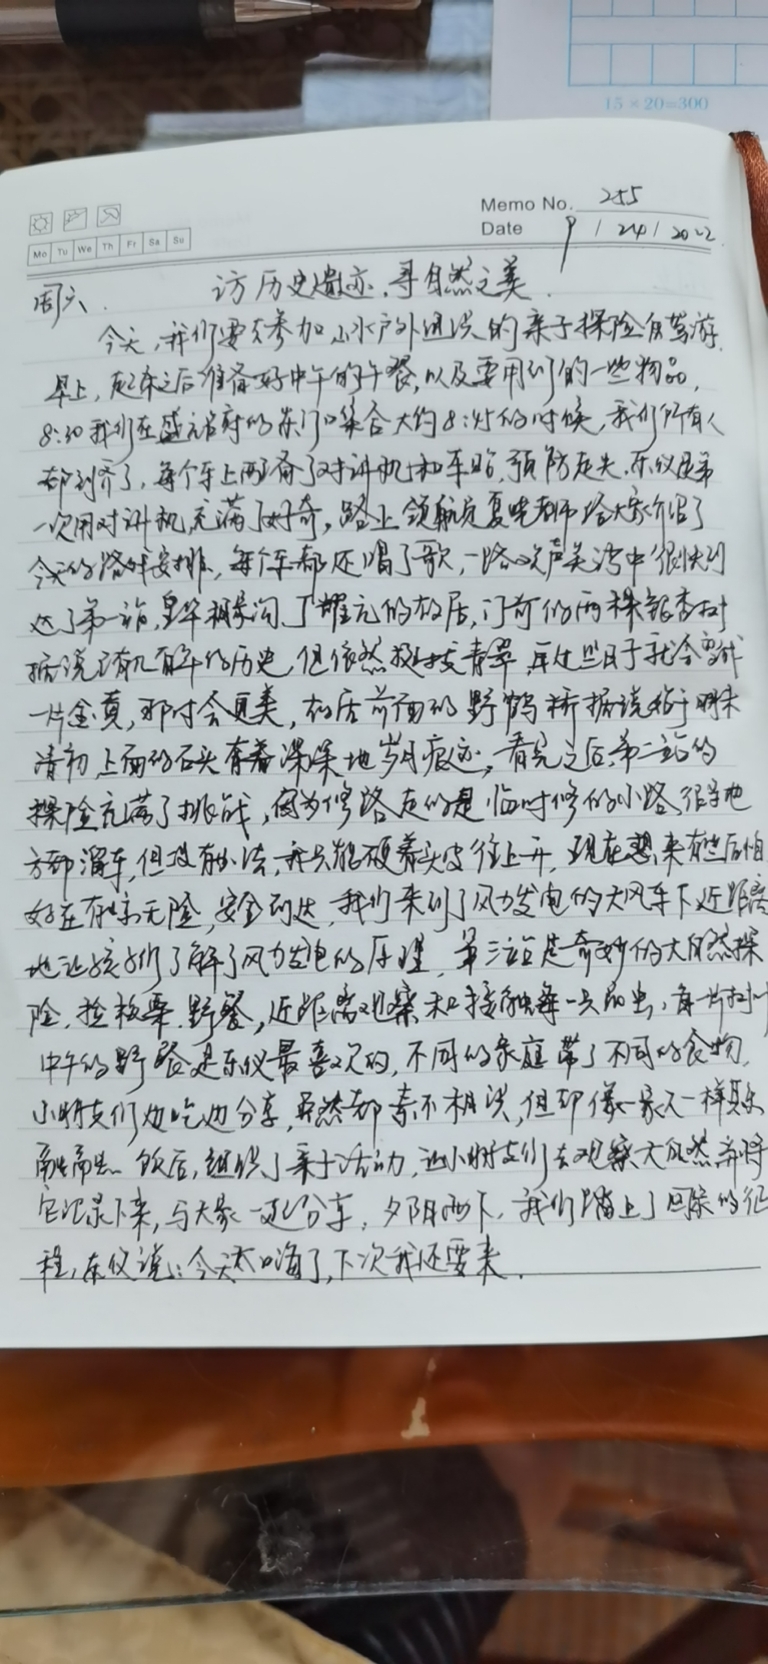 15×20=300
Memo No. 255
Date 9 / 24 / 2022
Mo Tu We Th Fr Sa Su
周六. 访历史遗迹,寻自然之美.
今天,我们要去参加山水户外组织的亲子探险自驾游.
早上,起床之后准备好中午的午餐,以及要用到的一些物品,
8:30我们在盛元首府的东门口集合大约8:45的时候,我们所有人
都到齐了,每个车上配备了对讲机和车贴,预防走失,东仪是第
一次用对讲机,充满了好奇,路上领航员夏晓老师给大家介绍了
今天的路线安排,每个车都还唱了歌,一路欢声笑语中很快到
达了第一站,丁耀亢的故居,门前的两株银杏树
据说已有几百年的历史,但依然挺拔青翠,再过些日子就会变成
一片金黄,那时会更美,故居前面的野鹤桥据说始于明末
清初,上面的石头有着深深地岁月痕迹,看完之后,第二站的
探险充满了挑战,因为修路走的是临时修的小路,很多地
方都溜车,但没有办法,我只能硬着头皮往上开,现在想来有些后怕
好在有惊无险,安全到达,我们来到了风力发电的大风车下近距离
地让孩子们了解了风力发电的原理,第三站是奇妙的大自然探
险,捡板栗,野餐,近距离观察和接触每一只昆虫,每一片树叶
中午的野餐是东仪最喜欢的,不同的家庭带了不同的食物,
小朋友们边吃边分享,虽然都素不相识,但却像一家人一样其乐
融融.饭后,组织了亲子活动,让小朋友们去观察大自然并将
它记录下来,与大家一起分享,夕阳西下,我们踏上了回家的征
程,东仪说:今天太嗨了,下次我还要来.